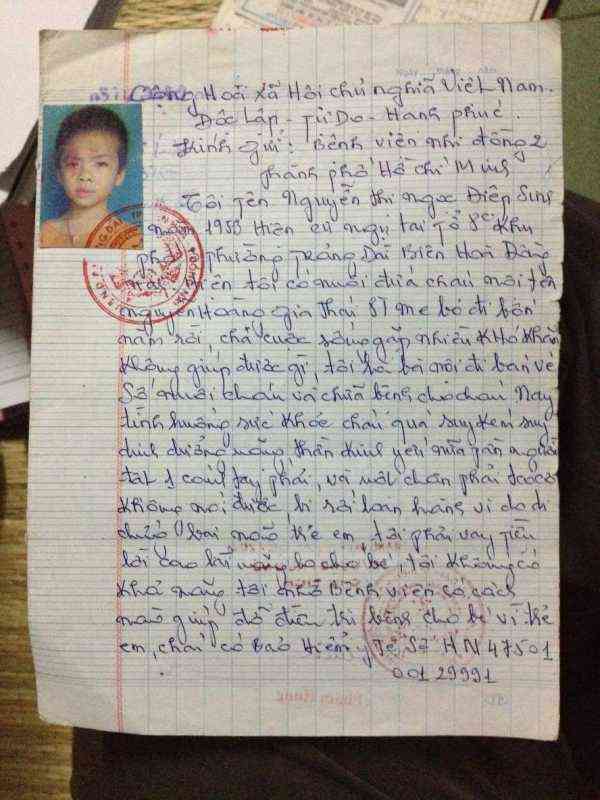 Cộng Hoà Xã Hội chủ nghĩa Việt Nam.
Độc Lập - Tự Do - Hạnh phúc.
Kính gửi: Bệnh viên nhi đồng 2
thành phố Hồ chí Minh
Tôi tên Nguyễn thi ngoc Điệp Sinh
năm 1953 Hiên cư ngụ tai tổ 8c Khu
phố phường trảng Dài Biên Hoà Đồng
Nai, Hiên tôi có nuôi đứa cháu nôi tên
nguyễn Hoàng gia Thái 8T mẹ bỏ đi bốn
năm rồi, cha cuộc sống gặp nhiều Khó Khăn
Không giúp được gì, tôi là bà nôi đi bán vé
Số nuôi cháu và chữa bệnh cho cháu Nay
tình huống sức Khỏe cháu quá suy Kém suy
dinh dưỡng nặng thần Kinh yếu nữa gần người
tât 1 cánh tay phải, và môt chân phải
Không nói được, bi rối loan hàng vi do di
chứng bai não trẻ em, tôi phải vay tiền
lời cao bé, tôi Không có
Khả năng tôi nhờ Bệnh viên có cách
nào giúp đỡ điều tri bệnh cho bé vì trẻ
em, cháu có Bảo Hiểm y Tế Số HN 47501
001 29991